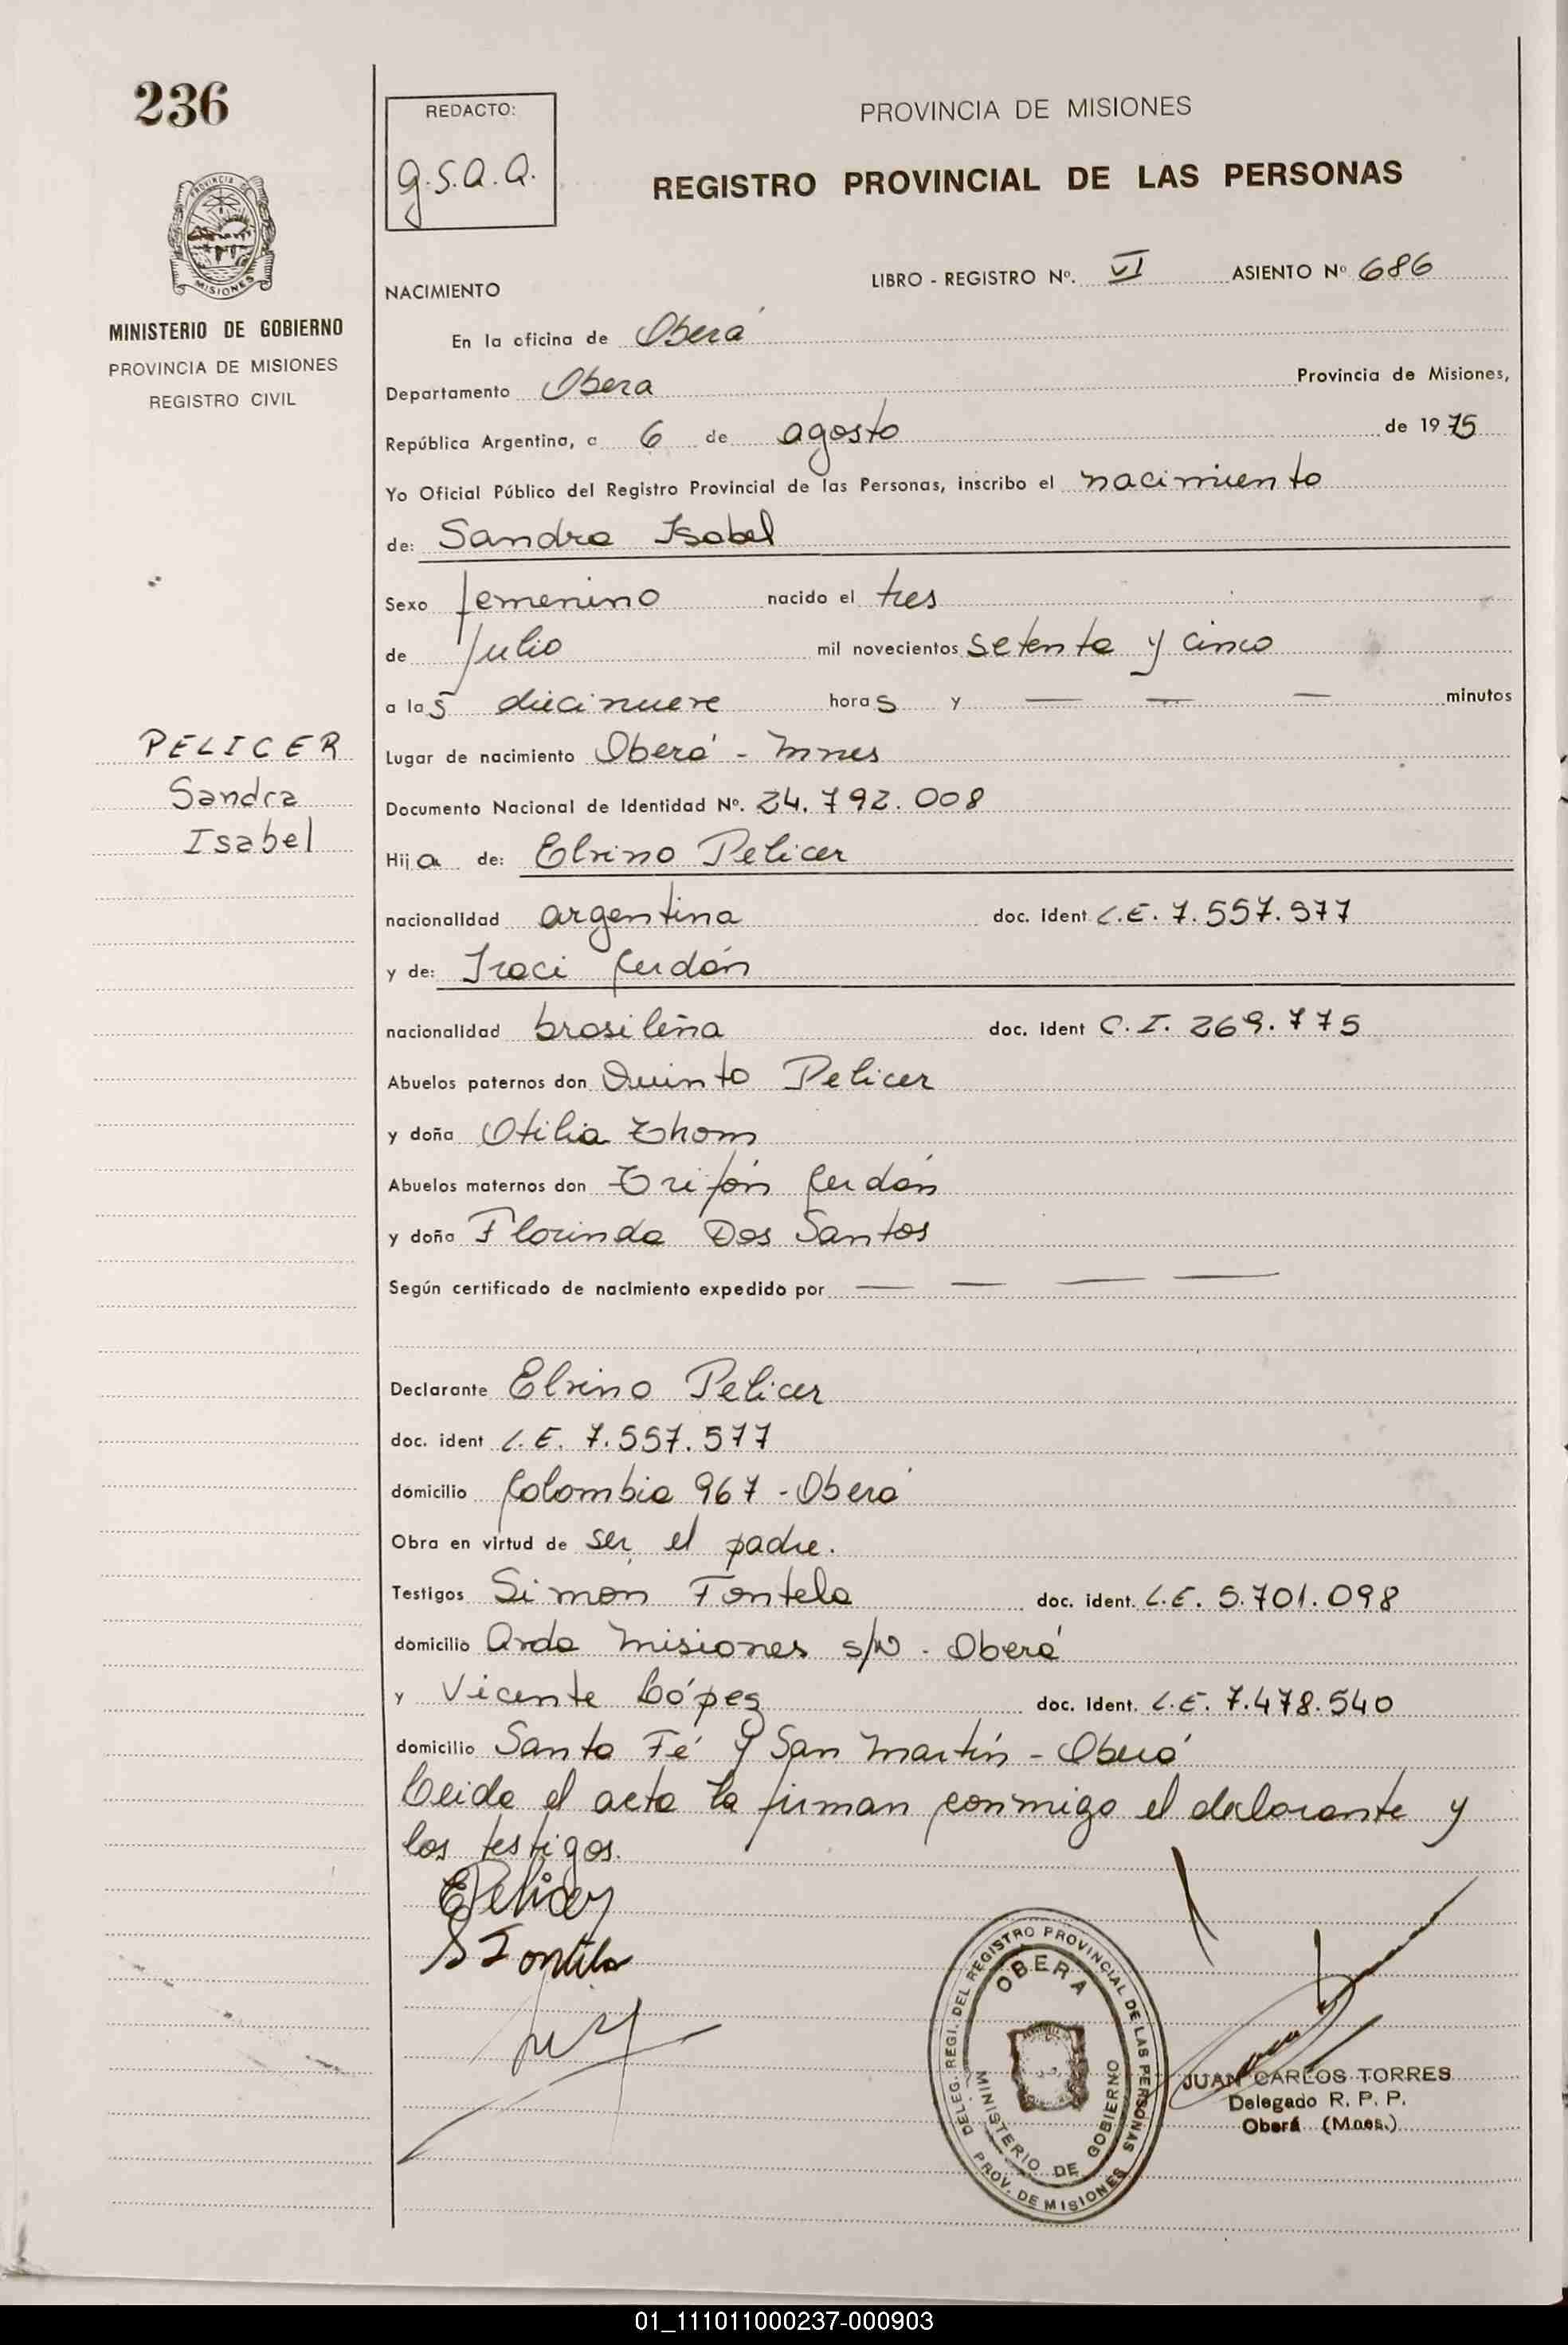 236
REDACTO:
g.s.a.a.
PROVINCIA DE MISIONES
REGISTRO PROVINCIAL DE LAS PERSONAS
PROVINCIA DE
MISIONES
MINISTERIO DE GOBIERNO
PROVINCIA DE MISIONES
REGISTRO CIVIL
NACIMIENTO
LIBRO - REGISTRO Nº. VI ASIENTO Nº 686
En la oficina de Oberá
Departamento Obera Provincia de Misiones,
República Argentina, a 6 de agosto de 1975
Yo Oficial Público del Registro Provincial de las Personas, inscribo el nacimiento
de: Sandra Isabel
Sexo femenino nacido el tres
de Julio mil novecientos setenta y cinco
a las diecinueve horas y — — — minutos
PELICER
Sandra
Isabel
Lugar de nacimiento Oberá - Mnes
Documento Nacional de Identidad Nº. 24.792.008
Hija de: Elvino Pelicer
nacionalidad argentina doc. ident L.E. 7.557.577
y de: Iraci Cerdán
nacionalidad brasileña doc. ident C.I. 269.775
Abuelos paternos don Quinto Pelicer
y doña Otilia Thom
Abuelos maternos don Trifón Cerdán
y doña Florinda Dos Santos
Según certificado de nacimiento expedido por — — — —
Declarante Elvino Pelicer
doc. ident L.E. 7.557.577
domicilio Colombia 967 - Oberá
Obra en virtud de ser el padre.
Testigos Simón Fontela doc. ident. L.E. 5.701.098
domicilio Avda Misiones s/N - Oberá
y Vicente López doc. Ident. L.E. 7.478.540
domicilio Santa Fé y San Martín - Oberá
Leida el acta la firman conmigo el declarante y
los testigos.
EPelicer
S Fontela
DELEG. REGI. DEL REGISTRO PROVINCIAL DE LAS PERSONAS
OBERA
MINISTERIO DE GOBIERNO
PROV. DE MISIONES
JUAN CARLOS TORRES
Delegado R. P. P.
Oberá (Mnes.)
01_111011000237-000903